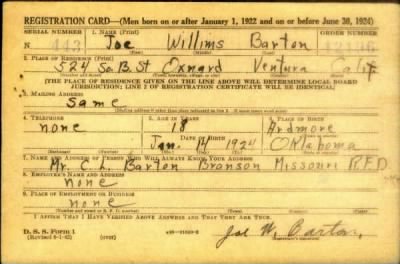 REGISTRATION CARD—(Men born on or after January 1, 1922 and on or before June 30, 1924)
SERIAL NUMBER 1. NAME (Print) ORDER NUMBER
N 443 Joe Willims Barton 12136
(First) (Middle) (Last)
2. PLACE OF RESIDENCE (Print)
524 So. B. St Oxnard Ventura Calif
[THE PLACE OF RESIDENCE GIVEN ON THE LINE ABOVE WILL DETERMINE LOCAL BOARD
JURISDICTION; LINE 2 OF REGISTRATION CERTIFICATE WILL BE IDENTICAL]
3. MAILING ADDRESS
Same
4. TELEPHONE 5. AGE IN YEARS 6. PLACE OF BIRTH
none 18 Ardmore
DATE OF BIRTH
Jan. 14 1924 Oklahoma
7. NAME AND ADDRESS OF PERSON WHO WILL ALWAYS KNOW YOUR ADDRESS
Mr. C. L. Barton Branson Missouri R.F.D
8. EMPLOYER'S NAME AND ADDRESS
None
9. PLACE OF EMPLOYMENT OR BUSINESS
none
I AFFIRM THAT I HAVE VERIFIED ABOVE ANSWERS AND THAT THEY ARE TRUE.
D. S. S. Form 1
(over) Joe W. Barton